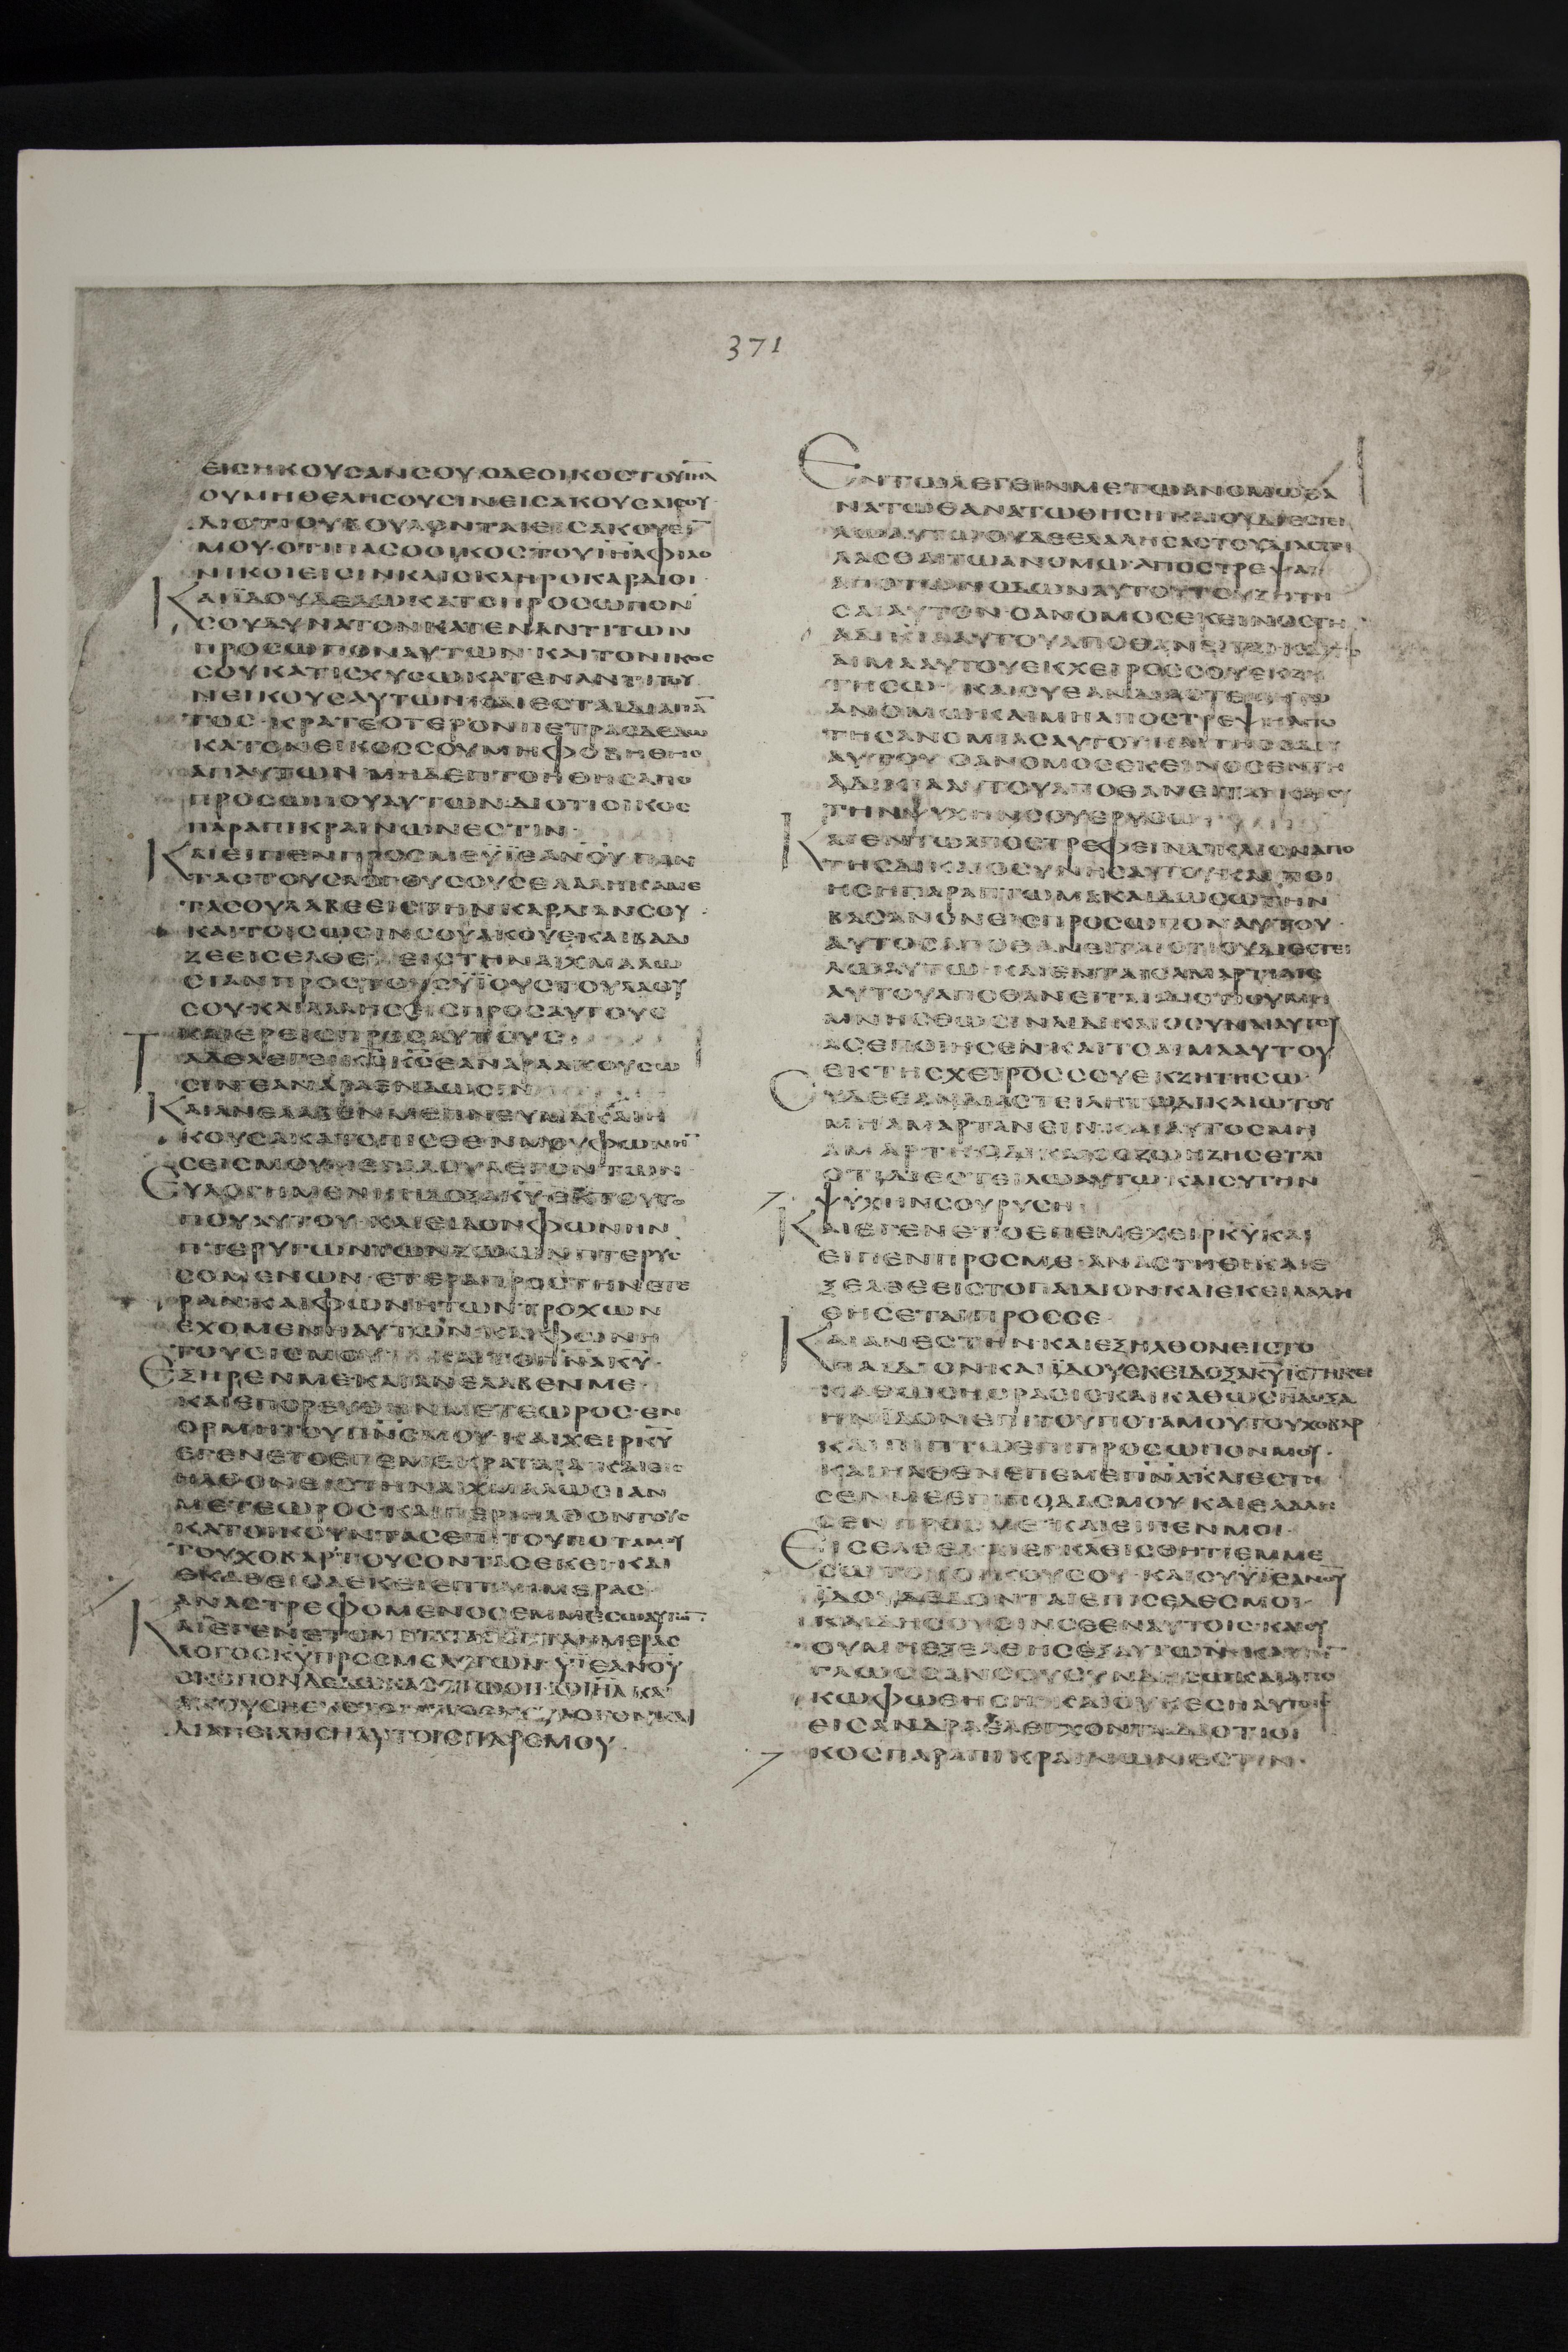 371
ΕΙΣΗΚΟΥΣΑΝΣΟΥ·ΟΔΕΟΙΚΟΣΤΟΥΙΗΛ
ΟΥΜΗΘΕΛΗΣΟΥΣΙΝΕΙΣΑΚΟΥΣΑΙΣΟΥ
ΔΙΟΤΙΟΥΒΟΥΛΟΝΤΑΙΕΙΣΑΚΟΥΕΙ̅
ΜΟΥ·ΟΤΙΠΑΣΟΟΙΚΟΣΤΟΥΙΗΛΦΙΛΟ
ΝΙΚΟΙΕΙΣΙΝΚΑΙΣΚΛΗΡΟΚΑΡΔΙΟΙ
ΚΑΙΪΔΟΥΔΕΔΩΚΑΤΟΠΡΟΣΩΠΟΝ
ΣΟΥΔΥΝΑΤΟΝΚΑΤΕΝΑΝΤΙΤΩΝ
ΠΡΟΣΩΠΩΝΑΥΤΩΝ·ΚΑΙΤΟΝΙΚΟΣ
ΣΟΥΚΑΤΙΣΧΥΣΩΚΑΤΕΝΑΝΤΙΤΟΥ
ΝΕΙΚΟΥΣΑΥΤΩΝ·ΚΑΙΕΣΤΑΙΔΙΑΠΑ̅
ΤΟΣ·ΚΡΑΤΕΟΤΕΡΟΝΠΕΤΡΑΣΔΕΔΩ
ΚΑΤΟΝΕΙΚΟΣΣΟΥΜΗΦΟΒΗΘΗΣ
ΑΠΑΥΤΩΝ·ΜΗΔΕΠΤΟΗΘΗΣΑΠΟ
ΠΡΟΣΩΠΟΥΑΥΤΩΝ·ΔΙΟΤΙΟΙΚΟΣ
ΠΑΡΑΠΙΚΡΑΙΝΩΝΕΣΤΙΝ·
ΚΑΙΕΙΠΕΝΠΡΟΣΜΕΥΪΕΑΝΟΥΠΑΝ
ΤΑΣΤΟΥΣΛΟΓΟΥΣΟΥΣΕΛΑΛΗΚΑΜΕ
ΤΑΣΟΥΛΑΒΕΕΙΣΤΗΝΚΑΡΔΙΑΝΣΟΥ·
ΚΑΙΤΟΙΣΩΣΙΝΣΟΥΑΚΟΥΕΚΑΙΒΑΔΙ
ΖΕΕΙΣΕΛΘΕ ΕΙΣΤΗΝΑΙΧΜΑΛΩ
ΣΙΑΝΠΡΟΣΤΟΥΣΥΪΟΥΣΤΟΥΛΑΟΥ
ΣΟΥ·ΚΑΙΛΑΛΗΣΕΙΣΠΡΟΣΑΥΤΟΥΣ
ΚΑΙΕΡΕΙΣΠΡΟΣΑΥΤΟΥΣ·
ΤΑΔΕΛΕΓΕΙΚ̅Σ̅Κ̅Σ̅ΕΑΝΑΡΑΑΚΟΥΣΩ
ΣΙΝΕΑΝΑΡΑΕΝΔΩΣΙΝ
ΚΑΙΑΝΕΛΑΒΕΝΜΕΠΝΕΥΜΑΚΑΙΗ
ΚΟΥΣΑΚΑΤΟΠΙΣΘΕΝΜΟΥΦΩΝΗ̅
ΣΕΙΣΜΟΥΜΕΓΑΛΟΥΛΕΓΟΝΤΩΝ
ΕΥΛΟΓΗΜΕΝΗΗΔΟΞΑΚ̅Υ̅ΕΚΤΟΥΤΟ
ΠΟΥΑΥΤΟΥ·ΚΑΙΕΙΔΟΝΦΩΝΗΝ
ΠΤΕΡΥΓΩΝΤΩΝΖΩΩΝΠΤΕΡΥΣ
ΣΟΜΕΝΩΝ·ΕΤΕΡΑΠΡΟΣΤΗΝΕΤΕ
ΡΑΝ·ΚΑΙΦΩΝΗΤΩΝΤΡΟΧΩΝ
ΕΧΟΜΕΝΗΑΥΤΩΝ·ΚΑΙΦΩΝΗ
ΤΟΥΣΙΣΜΟΥ
ΕΞΗΡΕΝΜΕ·ΚΑΙΑΝΕΛΑΒΕΝΜΕ·
ΚΑΙΕΠΟΡΕΥΘΗΝΜΕΤΕΩΡΟΣ·ΕΝ
ΟΡΜΗΤΟΥΠ̅Ν̅Σ̅ΜΟΥ·ΚΑΙΧΕΙΡΚ̅Υ̅
ΕΓΕΝΕΤΟΕΠΕΜΕΚΡΑΤΑΙΑ·ΚΑΙΕΙΣ
ΗΛΘΟΝΕΙΣΤΗΝΑΙΧΜΑΛΩΣΙΑΝ
ΜΕΤΕΩΡΟΣ·ΚΑΙΠΕΡΙΗΛΘΟΝΤΟΥΣ
ΚΑΤΟΙΚΟΥΝΤΑΣΕΠΙΤΟΥΠΟΤΑΜΟΥ
ΤΟΥΧΟΒΑΡΤΟΥΣΟΝΤΑΣΕΚΕΙ·ΚΑΙ
ΕΚΑΘΕΙΣΑΕΚΕΙΕΠΤΑΗΜΕΡΑΣ·
ΑΝΑΣΤΡΕΦΟΜΕΝΟΣΕΜΜΕΣΩΑΥΤΩ̅·
ΚΑΙΕΓΕΝΕΤΟΜΕΤΑΤΑΣΕΠΤΑΗΜΕΡΑΣ
ΛΟΓΟΣΚ̅Υ̅ΠΡΟΣΜΕΛΕΓΩΝ·ΥΪΕΑΝΟΥ
ΣΚΟΠΟΝΔΕΔΩΚΑΣΕΤΩΟΙΚΩΙΗΛΚΑΙ
ΑΚΟΥΣΗ
ΔΙΑΠΕΙΛΗΣΗΑΥΤΟΙΣΠΑΡΕΜΟΥ·
ΕΝΤΩΛΕΓΕΙΝΜΕΤΩΑΝΟΜΩΘΑ
ΝΑΤΩΘΑΝΑΤΩΘΗΣΗΚΑΙΟΥΔΙΕΣΤΕΙ
ΛΩΑΥΤΩΟΥΔΕΕΛΑΛΗΣΑΣΤΟΥΔΙΑΣΤΕΙ
ΛΑΣΘΑΙΤΩΑΝΟΜΩ·ΑΠΟΣΤΡΕΨΑΙ
ΑΠΟΤΩΝΟΔΩΝΑΥΤΟΥΤΟΥΖΗΣ
ΣΑΙΑΥΤΟΝ·ΟΑΝΟΜΟΣΕΚΕΙΝΟΣΤΗ
ΑΔΙΚΙΑΑΥΤΟΥΑΠΟΘΑΝΕΙΤΑΙ·ΚΑΙΤΟ
ΑΙΜΑΑΥΤΟΥΕΚΧΕΙΡΟΣΣΟΥΕΚΖΗ
ΤΗΣΩ· ΚΑΙΣΥΕΑΝΔΙΑΣΤΕΙΛΗΤΩ
ΑΝΟΜΩΚΑΙΜΗΑΠΟΣΤΡΕΨΗΑΠΟ
ΤΗΣΑΝΟΜΙΑΣΑΥΤΟΥΚΑΙΤΗΣΟΔΟΥ
ΑΥΤΟΥΟΑΝΟΜΟΣΕΚΕΙΝΟΣΕΝΤΗ
ΑΔΙΚΙΑΑΥΤΟΥΑΠΟΘΑΝΕΙΤΑΙΚΑΙΣΥ
ΤΗΝΨΥΧΗΝΣΟΥΕΡΥΣΩ
ΚΑΙΕΝΤΩΑΠΟΣΤΡΕΦΕΙΝΔΙΚΑΙΟΝΑΠΟ
ΤΗΣΔΙΚΑΙΟΣΥΝΗΣΑΥΤΟΥΚΑΙΠΟΙ
ΗΣΗΠΑΡΑΠΤΩΜΑΚΑΙΔΩΣΩΤΗΝ
ΒΑΣΑΝΟΝΕΙΣΠΡΟΣΩΠΟΝΑΥΤΟΥ·
ΑΥΤΟΣΑΠΟΘΑΝΕΙΤΑΙΟΤΙΟΥΔΙΕΣΤΕΙ
ΛΩΑΥΤΩ·ΚΑΙΕΝΤΑΙΣΑΜΑΡΤΙΑΙΣ
ΑΥΤΟΥΑΠΟΘΑΝΕΙΤΑΙΔΙΟΤΙΟΥΜΗ
ΜΝΗΣΘΩΣΙΝΑΙΔΙΚΑΙΟΣΥΝΑΙΑΥΤΟΥ
ΑΣΕΠΟΙΗΣΕΝ·ΚΑΙΤΟΑΙΜΑΑΥΤΟΥ
ΕΚΤΗΣΧΕΙΡΟΣΣΟΥΕΚΖΗΤΗΣΩ·
ΣΥΔΕΕΑΝΔΙΑΣΤΕΙΛΗΤΩΔΙΚΑΙΩΤΟΥ
ΜΗΑΜΑΡΤΑΝΕΙΝ·ΚΑΙΑΥΤΟΣΜΗ
ΑΜΑΡΤΗΟΔΙΚΑΙΟΣΖΩΗΖΗΣΕΤΑΙ
ΟΤΙΔΙΕΣΤΕΙΛΩΑΥΤΩ·ΚΑΙΣΥΤΗΝ
ΨΥΧΗΝΣΟΥΡΥΣΗ
ΚΑΙΕΓΕΝΕΤΟΕΠΕΜΕΧΕΙΡΚ̅Υ̅ΚΑΙ
ΕΙΠΕΝΠΡΟΣΜΕ·ΑΝΑΣΤΗΘΙΚΑΙΕ
ΞΕΛΘΕΕΙΣΤΟΠΑΙΔΙΟΝΚΑΙΕΚΕΙΛΑΛΗ
ΘΗΣΕΤΑΙΠΡΟΣΣΕ·
ΚΑΙΑΝΕΣΤΗΝΚΑΙΕΞΗΛΘΟΝΕΙΣΤΟ
ΠΑΙΔΙΟΝΚΑΙΪΔΟΥΕΚΕΙΔΟΞΑΚ̅Υ̅ΪΣΤΗΚΕΙ
ΚΑΘΩΣΗΟΡΑΣΙΣΚΑΙΚΑΘΩΣΗΔΟΞΑ
ΗΝΪΔΟΝΕΠΙΤΟΥΠΟΤΑΜΟΥΤΟΥΧΟΒΑΡ
ΚΑΙΠΙΠΤΩΕΠΙΠΡΟΣΩΠΟΝΜΟΥ·
ΚΑΙΗΛΘΕΝΕΠΕΜΕΠ̅Ν̅Α̅ΚΑΙΕΣΤΗ
ΣΕΝΜΕΕΠΙΠΟΔΑΣΜΟΥ·ΚΑΙΕΛΑΛΗ
ΣΕΝΠΡΟΣΜΕΚΑΙΕΙΠΕΝΜΟΙ·
ΕΙΣΕΛΘΕΚΑΙΕΓΚΛΕΙΣΘΗΤΙΕΜΜΕ
ΣΩΤΟΥΟΙΚΟΥΣΟΥ·ΚΑΙΣΥΥΪΕΑΝΟΥ
ΪΔΟΥΔΕΔΟΝΤΑΙΕΠΙΣΕΔΕΣΜΟΙ·
ΚΑΙΔΗΣΟΥΣΙΝΣΕΕΝΑΥΤΟΙΣ·ΚΑΙΟΥ
ΟΥΜΗΕΞΕΛΘΗΣΕΞΑΥΤΩΝ·ΚΑΙΤΗ̅
ΓΛΩΣΣΑΝΣΟΥΣΥΝΔΗΣΩΚΑΙΑΠΟ
ΚΩΦΩΘΗΣΗ·ΚΑΙΟΥΚΕΣΗΑΥΤΟΙΣ
ΕΙΣΑΝΔΡΑΕΛΕΓΧΟΝΤΑΔΙΟΤΙΟΙ
ΚΟΣΠΑΡΑΠΙΚΡΑΙΝΩΝΕΣΤΙΝ·